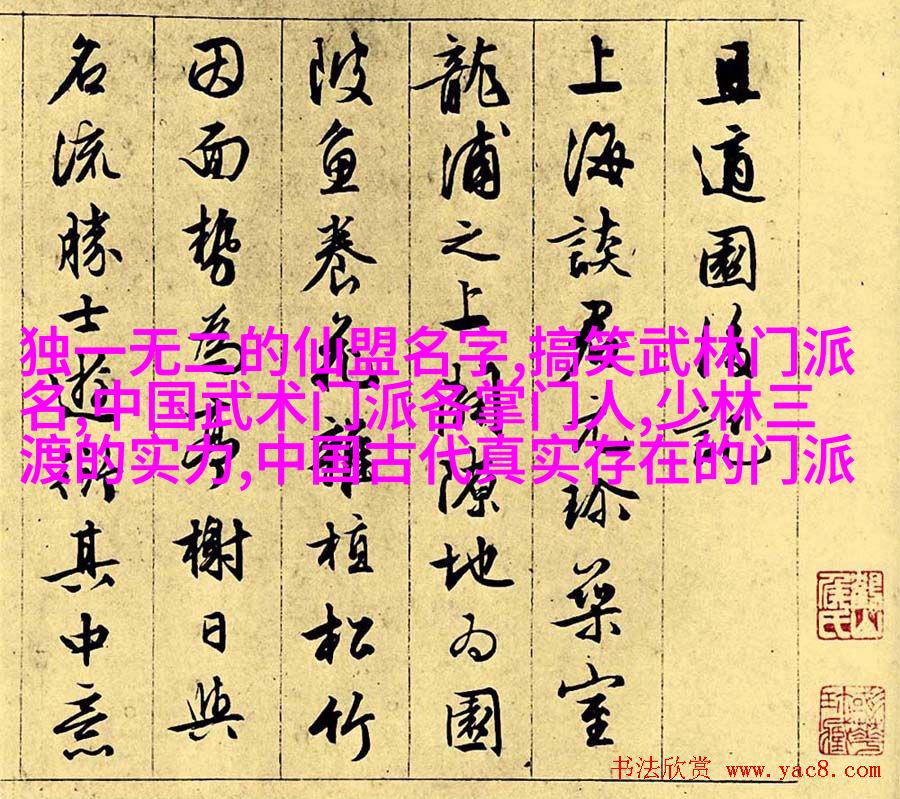 且適園後記
上海談君元珍築室
龍浦之上隙地为園
陂魚養花雜植松竹
因面勢為亭榭日與
名流勝士遊其中意
独一无二的仙盟名字,搞笑武林门派
名,中国武术门派各掌门人,少林三
渡的实力,中国古代真实存在的门派
书法欣赏 www.yac8.com